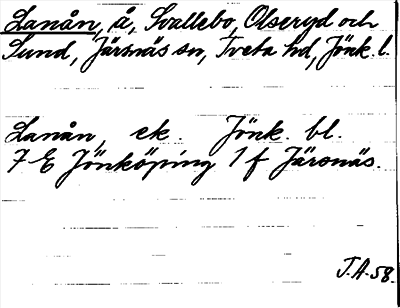 Lanån, å, Svallebo, Olseryd och
Sund, Järsnäs sn, Tveta hd, Jönk. l.
Lanån, ek. Jönk. bl.
7 E Jönköping 1 f Järsnäs.
J.A. 58.